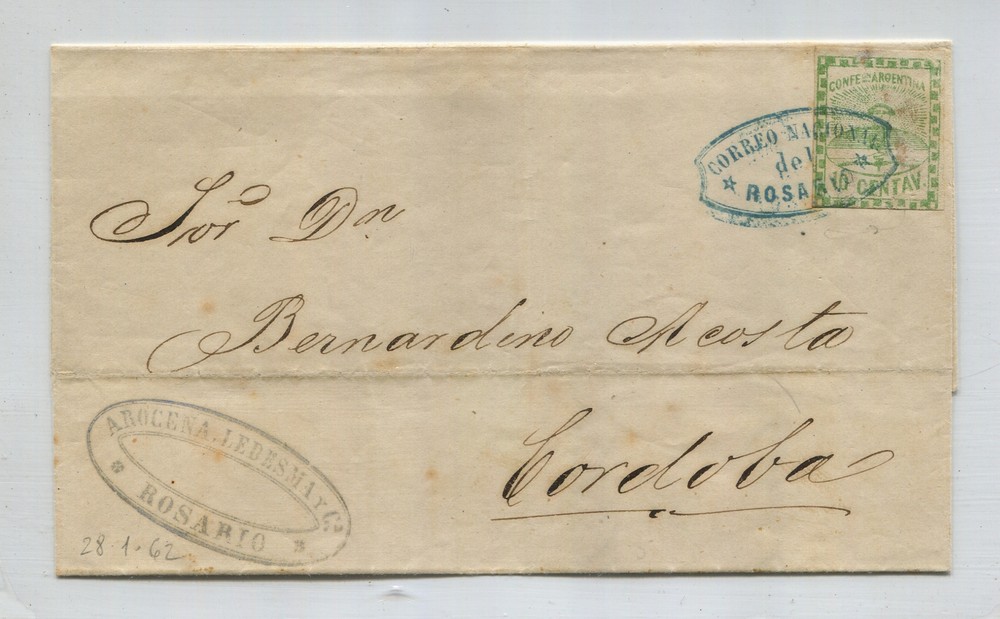 CONFE.ON ARGENTINA
10 CENTAV.
CORREO NACIONAL
del
ROSARIO
Sor Dn
Bernardino Acosta
Cordoba
AROCENA, LEDESMA Y Ca
ROSARIO
28.1.62